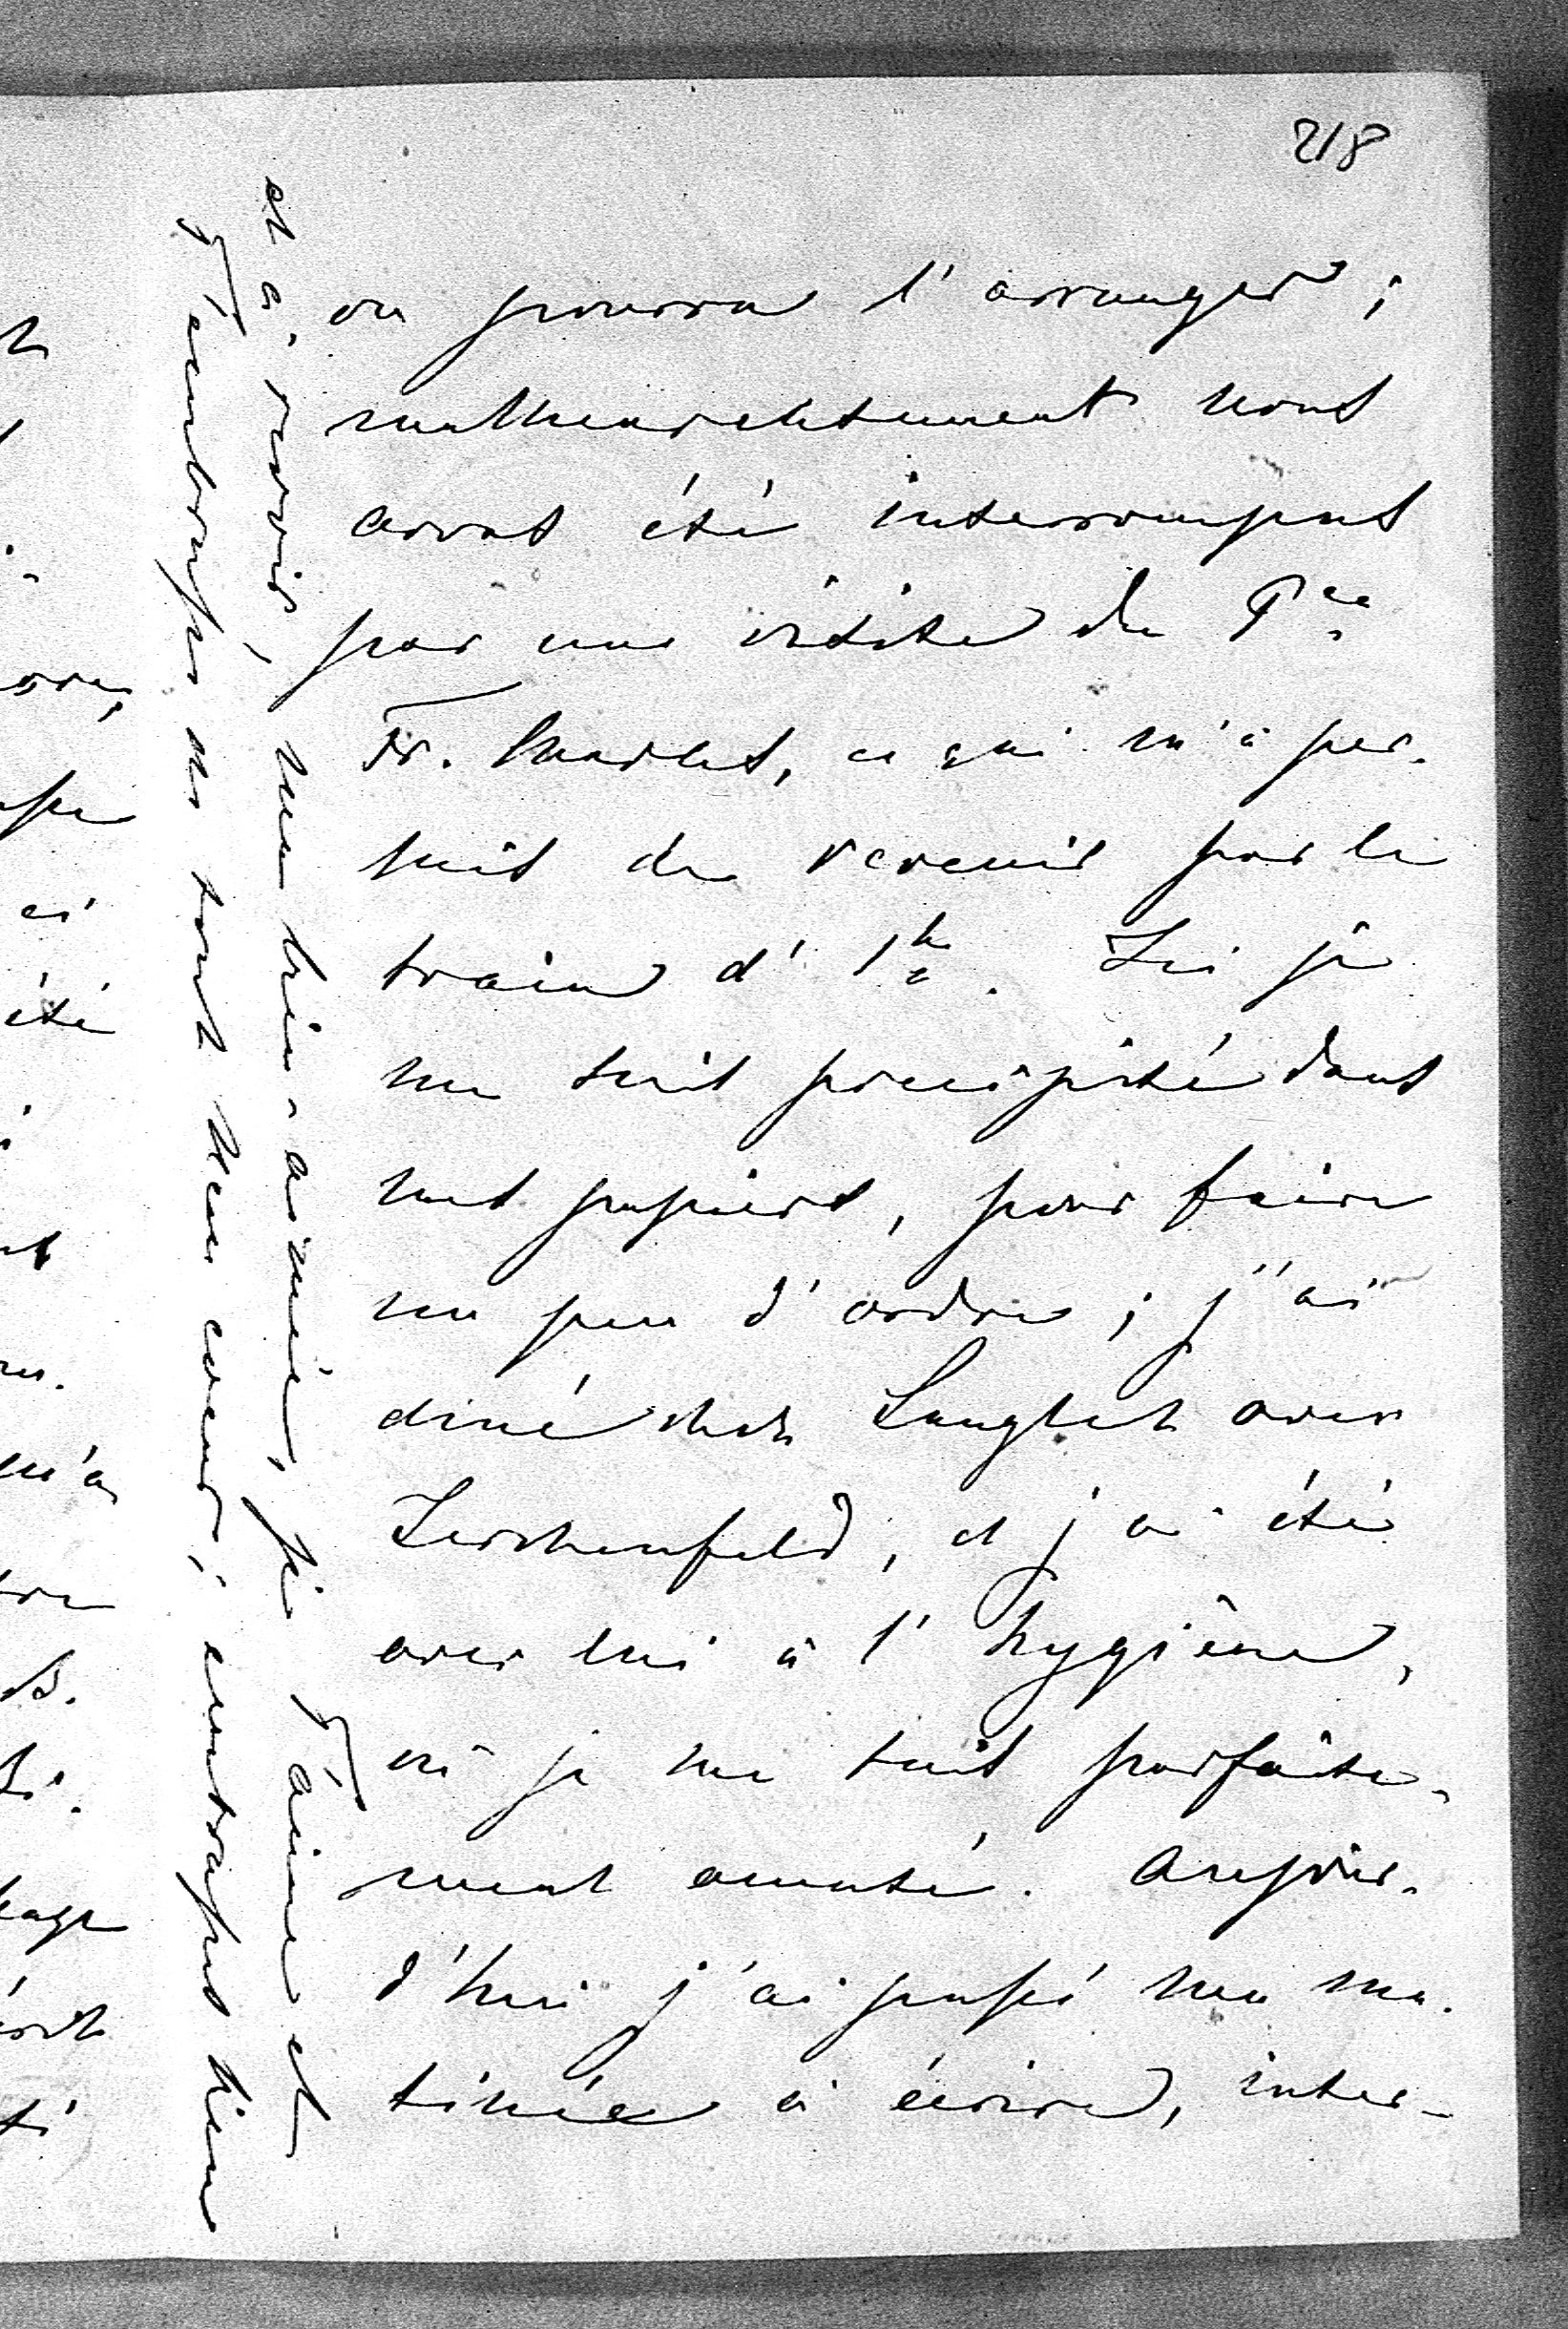 218
on pourra l'arranger ;
malheureusement nous
avons été interrompus
par une visite du Pce
Fr. Charles, ce qui m'a per-
mis de revenir par le
train d' 1h. Ici je
me suis précipité dans
mes papiers, pour faire
un peu d'ordre ; j'ai
diné chez Langlet avec
Lerchenfeld, et j'ai été
avec lui à l'hygiène,
où je me suis parfaite-
ment amusé. Aujour-
d'hui j'ai passé ma ma-
tinée à écrire, inter-
et à revoir, ma bien-aimée, je T'aime et
T'embrasse de tout mon coeur ; embrasses bien